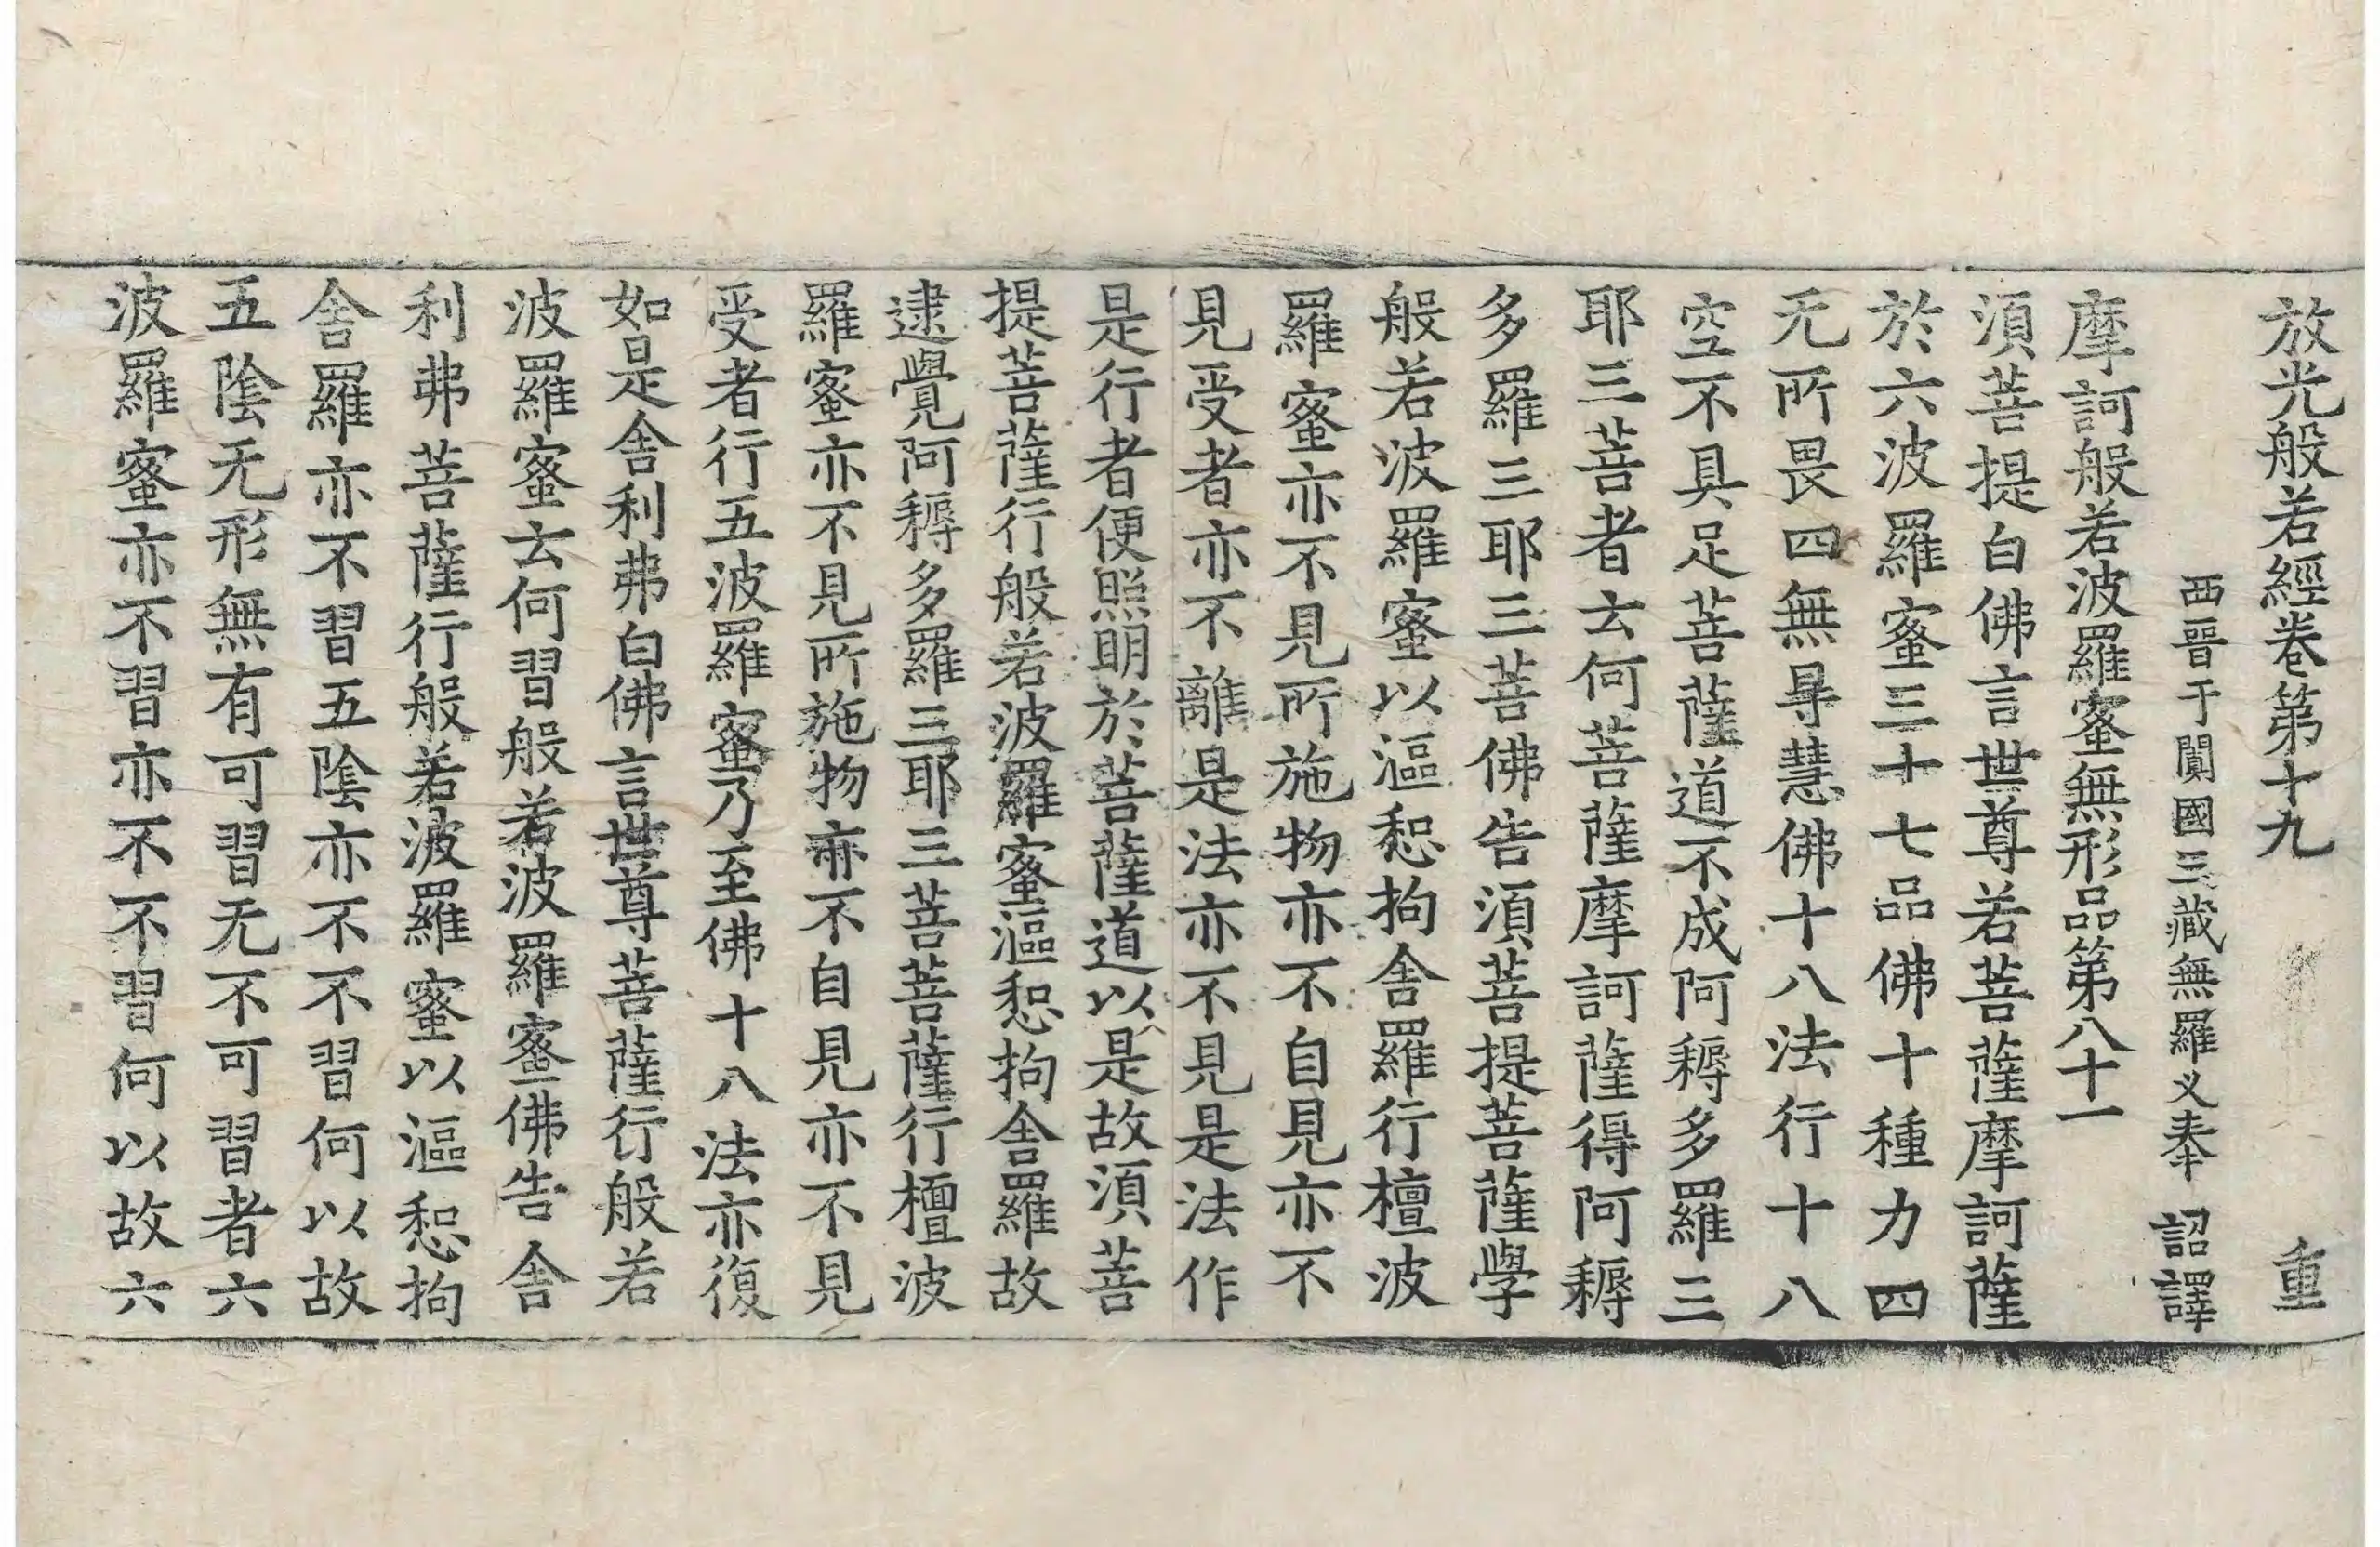 放光般若經卷第十九 重
西晉于闐國三藏無羅叉奉 詔譯
摩訶般若波羅蜜無形品第八十一
須菩提白佛言世尊若菩薩摩訶薩
於六波羅蜜三十七品佛十種力四
无所畏四無㝵慧佛十八法行十八
空不具足菩薩道不成阿耨多羅三
耶三菩者云何菩薩摩訶薩得阿耨
多羅三耶三菩佛告須菩提菩薩學
般若波羅蜜以漚惒拘舍羅行檀波
羅蜜亦不見所施物亦不自見亦不
見受者亦不離是法亦不見是法作
是行者便照明於菩薩道以是故須菩
提菩薩行般若波羅蜜漚惒拘舍羅故
逮覺阿耨多羅三耶三菩菩薩行檀波
羅蜜亦不見所施物亦不自見亦不見
受者行五波羅蜜乃至佛十八法亦復
如是舍利弗白佛言世尊菩薩行般若
波羅蜜云何習般若波羅蜜佛告舍
利弗菩薩行般若波羅蜜以漚惒拘
舍羅亦不習五陰亦不不習何以故
五陰无形無有可習无不可習者六
波羅蜜亦不習亦不不習何以故六